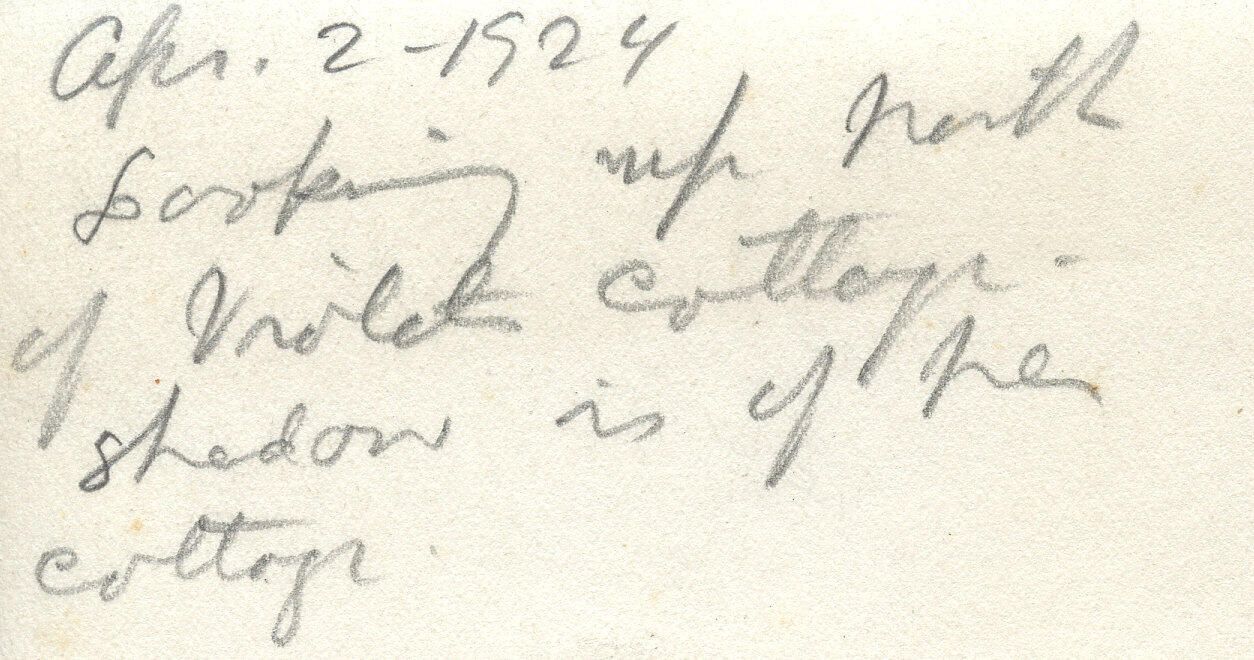 Apr. 2 - 1924
Looking up north
of Violet cottage.
shadow is of her
cottage.